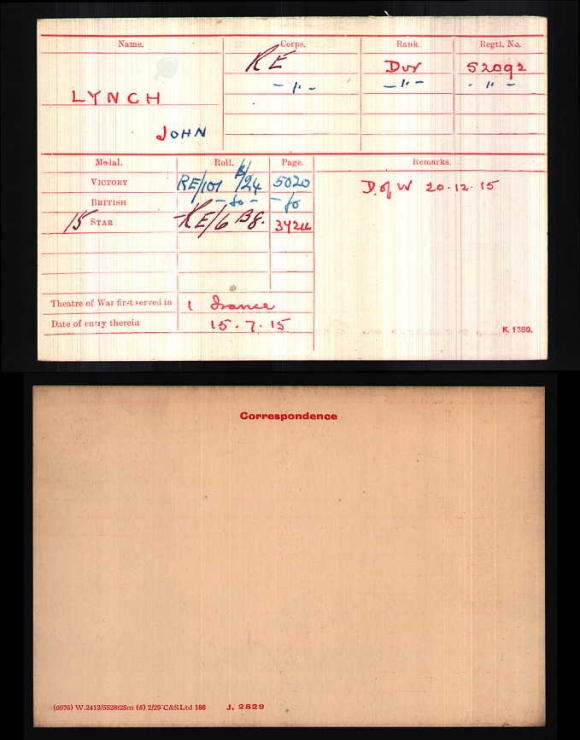 Name. Corps. Rank. Regtl. No.
RE Dvr 52092
LYNCH - " - - " - - " -
JOHN
Medal. Roll. Page. Remarks.
VICTORY RE/101 B/24 5020 D of W 20.12.15
BRITISH - do - - do
15 STAR RE/6 B8.
Theatre of War first served in 1 France
Date of entry therein 15.7.15
K. 1380.
Correspondence
J. 2829